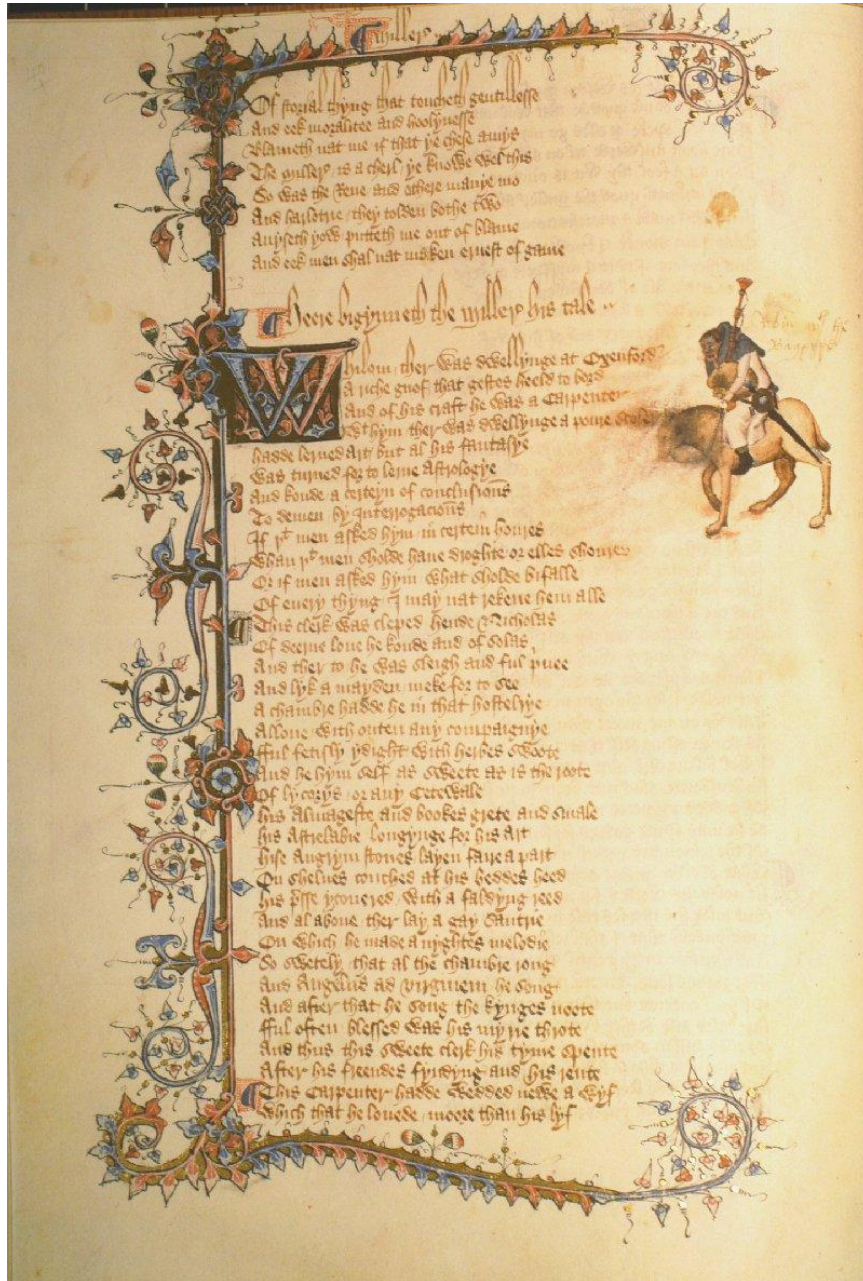 Miller
Of storial thyng that toucheth gentillesse
And eek moralitee and hoolynesse
Blameth nat me if that ye chese amys
The Millere is a cherl / ye knowe wel this
So was the Reue and othere manye mo
And harlotrie / they tolden bothe two
Auyseth yow putteth me out of blame
And eek men shal nat maken ernest of game
Heere bigynneth the Millere his tale
Whilom / ther was dwellynge at Oxenford
A riche gnof that gestes heeld to bord
And of his craft he was a Carpenter
Wt hym ther was dwellynge a poure
hadde lerned Art / but al his fantasye
Was turned for to lerne Astrologye
And koude a certeyn of conclusions
To demen by Interrogacions
If yt men asked hym / in certein houres
Whan yt men sholde haue droghte or elles shoures
Or if men asked hym / what sholde bifalle
Of euery thyng / I may nat rekene hem alle
This clerk was cleped hende Nicholas
Of deerne loue he koude and of solas
And ther to he was sleigh and ful priuee
And lyk a mayden meke for to see
A chambre hadde he in that hostelrye
Allone / with outen any compaignye
fful fetisly ydight with herbes swoote
And he hym self as sweete as is the roote
Of lycorys / or any Cetewale
his Almageste and bookes grete and smale
his Astrelabie / longynge for his Art
hise Augrym stones layen faire a part
On shelues couched at his beddes heed
his presse ycouered with a faldyng reed
And al aboue ther lay a gay Sautrie
On which he made a nyghtes melodie
So swetely that al the chambre rong
And Angelus ad virginem he song
And after that he song the kynges noote
fful often blessed was his myrie throte
And thus this sweete clerk his tyme spente
After his freendes fyndyng and his rente
This Carpenter hadde wedded newe a wyf
Which that he louede moore than his lyf